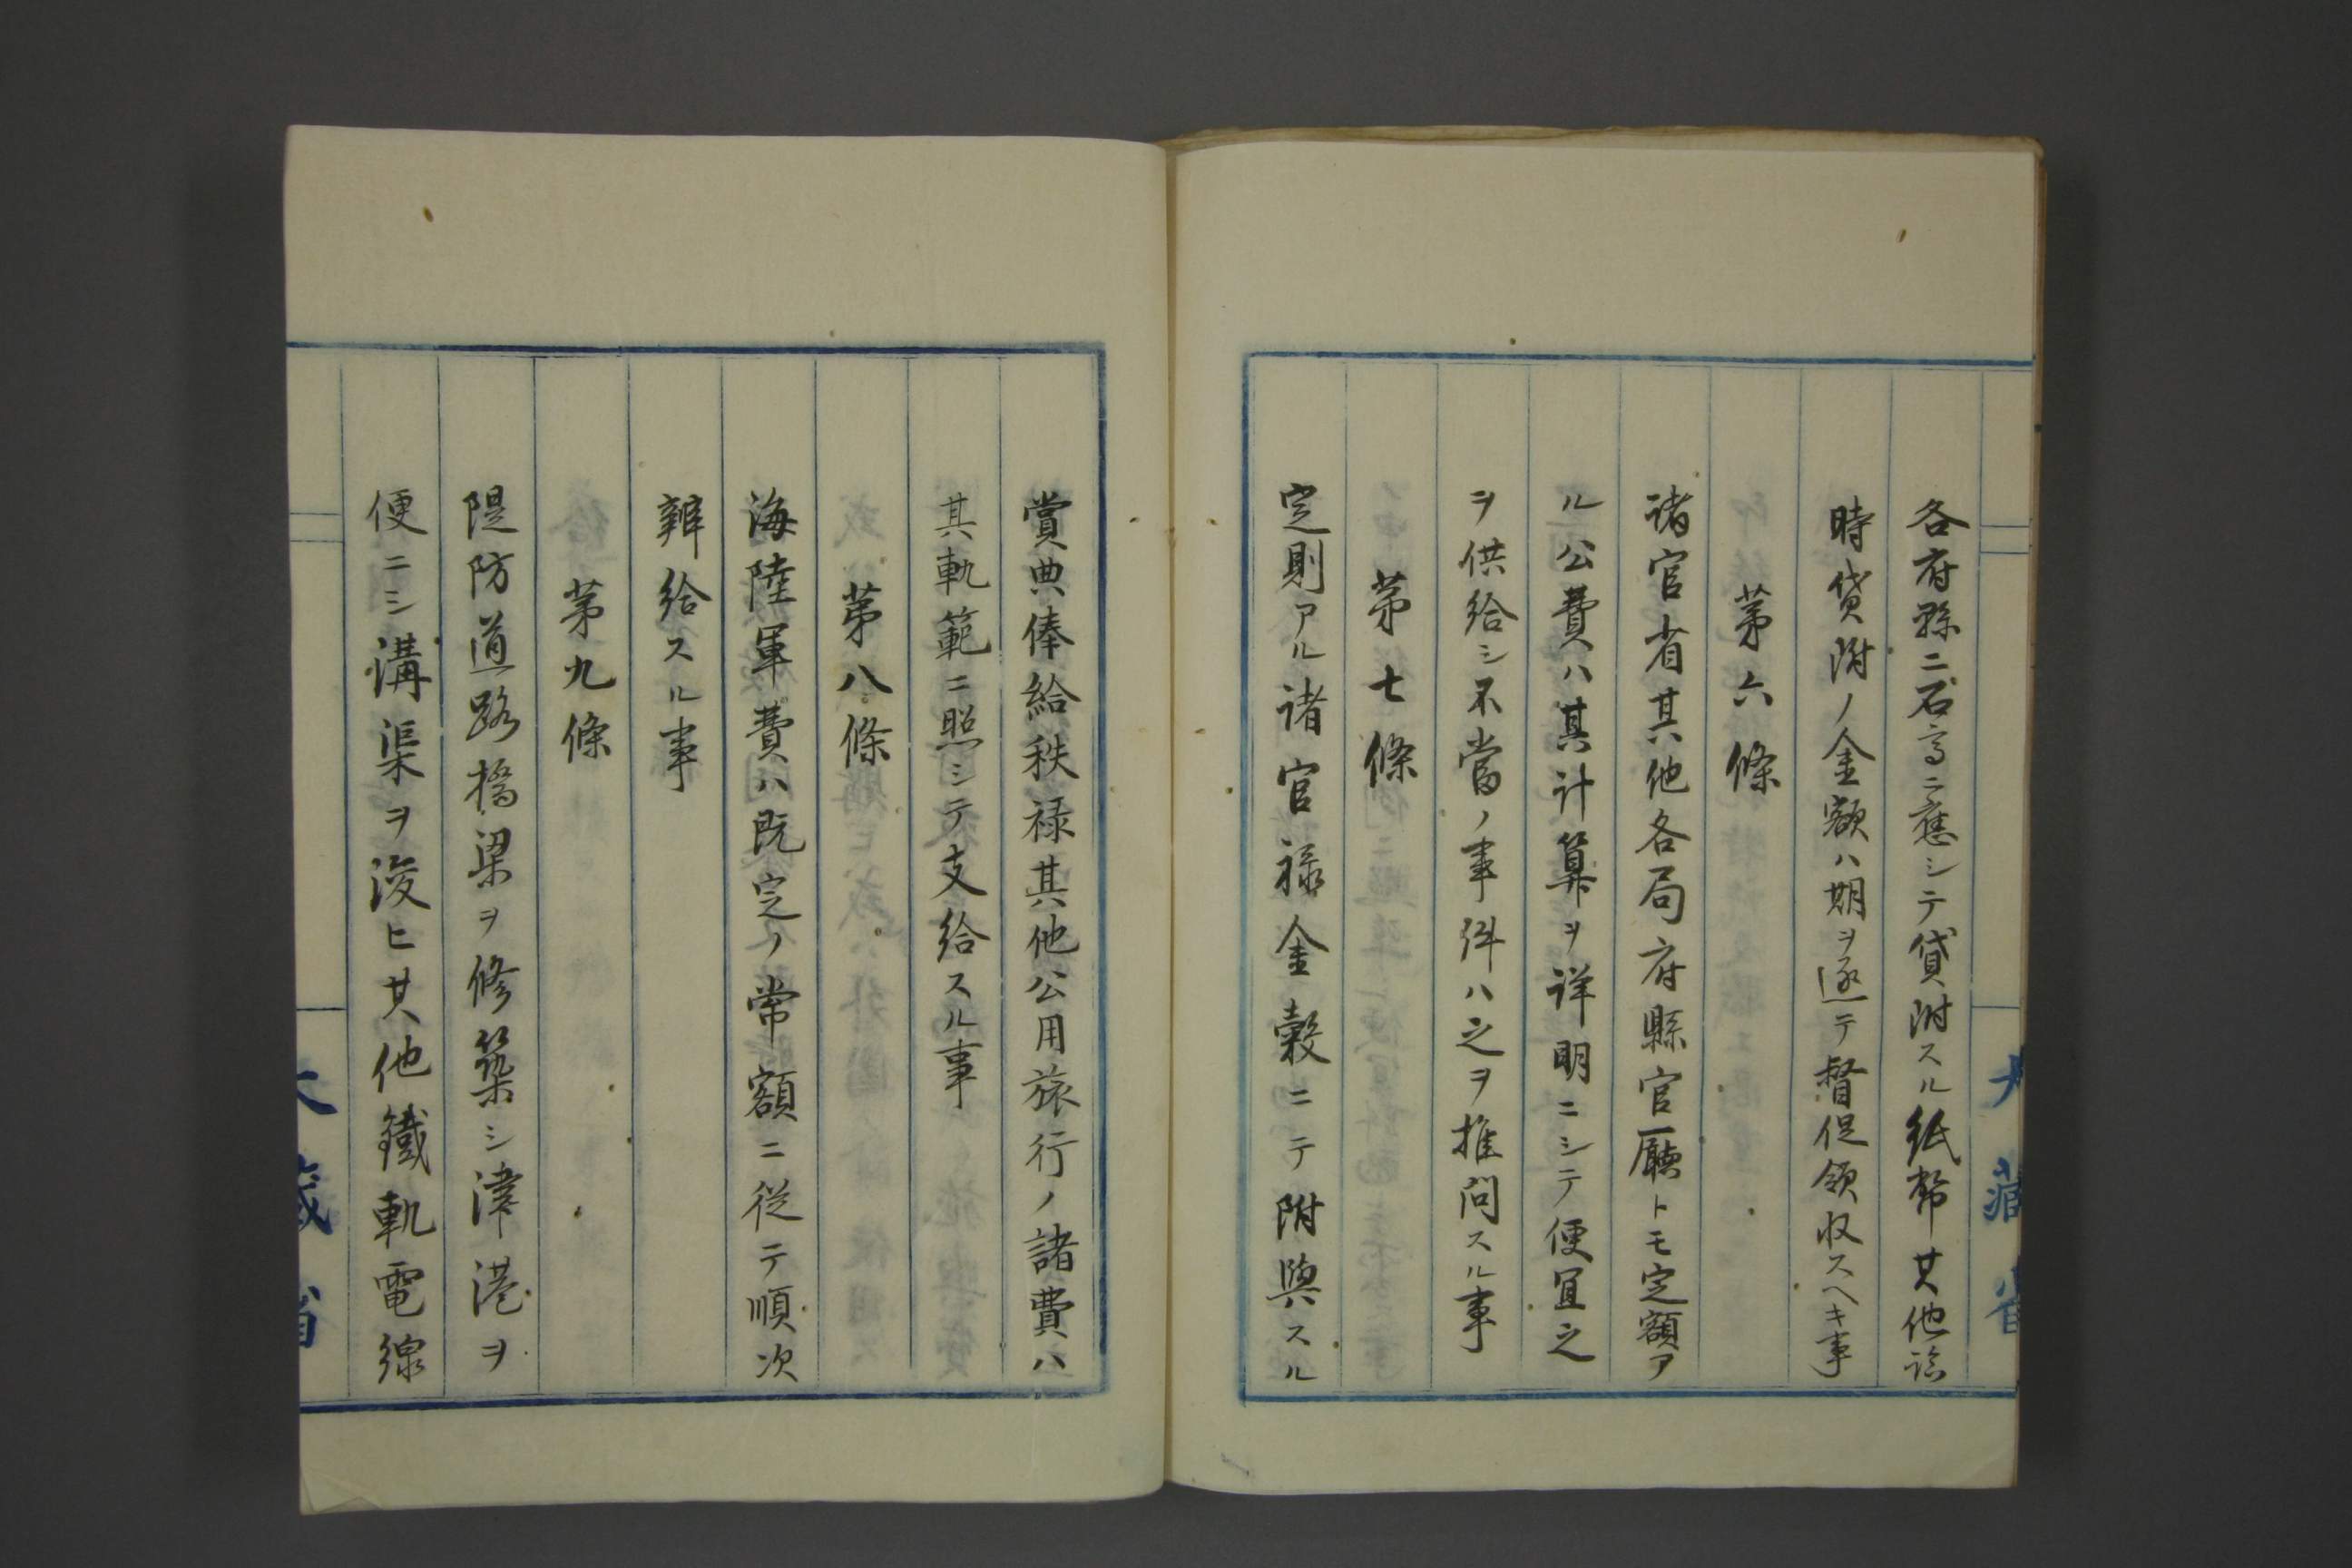 各府縣ニ石高ニ應シテ貸附スル紙幣其他臨
時貸附ノ金額ハ期ヲ逐テ督促領収スヘキ事
第六條
諸官省其他各局府縣官廳トモ定額ア
ル公費ハ其計算ヲ詳明ニシテ便宜之
ヲ供給シ不當ノ事件ハ之ヲ推問スル事
第七條
定則アル諸官禄金穀ニテ附與スル
賞典俸給秩禄其他公用旅行ノ諸費ハ
其軌範ニ照シテ支給スル事
第八條
海陸軍費ハ既定ノ常額ニ従テ順次
辨給スル事
第九條
隄防道路橋梁ヲ修築シ津港ヲ
便ニシ溝渠ヲ浚ヒ其他鐵軌電線
大藏省
大藏省